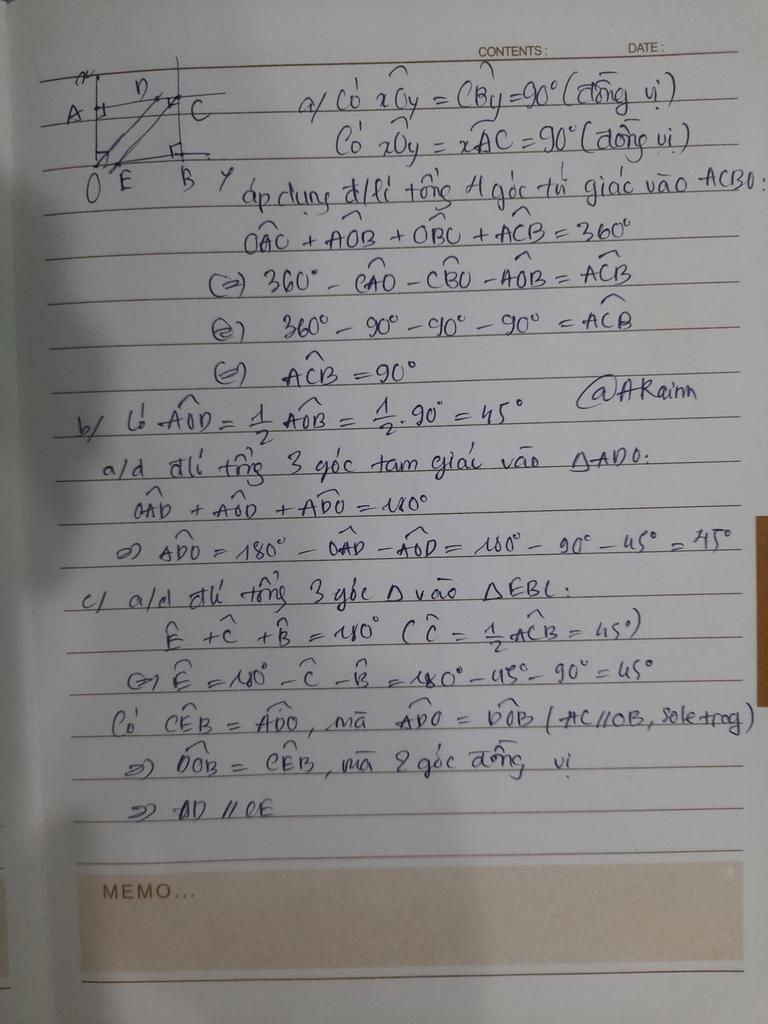 CONTENTS: DATE:
x
A D C
O E B y
a/ Có xÔy = CB̂y = 90° (đồng vị)
Có xÔy = xÂC = 90° (đồng vị)
áp dụng đ/lí tổng 4 góc tứ giác vào ACBO:
OÂC + AÔB + OB̂C + AĈB = 360°
(=) 360° - CÂO - CB̂O - AÔB = AĈB
(=) 360° - 90° - 90° - 90° = AĈB
(=) AĈB = 90°
@ARainn
b/ Có AÔD = 1/2 AÔB = 1/2 . 90° = 45°
a/d đlí tổng 3 góc tam giác vào ΔADO:
OÂD + AÔD + AD̂O = 180°
=) AD̂O = 180° - OÂD - AÔD = 180° - 90° - 45° = 45°
c/ a/d đlí tổng 3 góc Δ vào ΔEBC:
Ê + Ĉ + B̂ = 180° (Ĉ = 1/2 AĈB = 45°)
(=) Ê = 180° - Ĉ - B̂ = 180° - 45° - 90° = 45°
Có CÊB = AD̂O, mà AD̂O = DÔB (AC//OB, sole trog)
=) DÔB = CÊB, mà 2 góc đồng vị
=) OD // CE
MEMO...